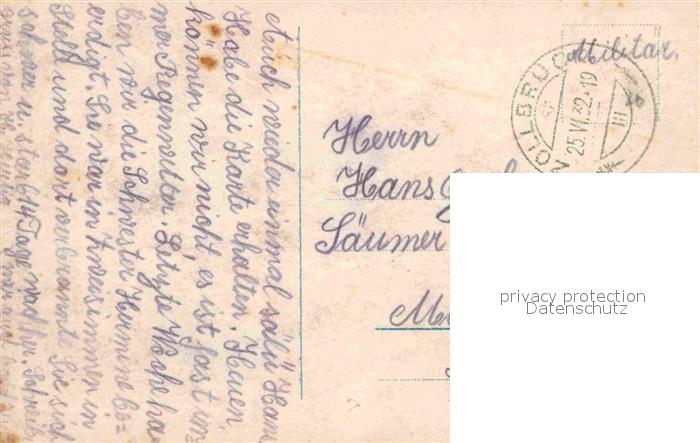 Auch wieder einmal salü Han
Habe die Karte erhalten. Heuen
können wir nicht, es ist fast im=
mer Regenwetter. Letzte Woche ha
ben wir die Schwester Hermine be=
erdigt. Sie war in Zweisimmen in
Stell und dort verbrannte Sie sich
schwer u. starb 14 Tage nachher. Schreib
Militär.
ZOLLBRÜC
25.VI.32.-19
III
Herrn
Hans
Säumer
privacy protection
Datenschutz